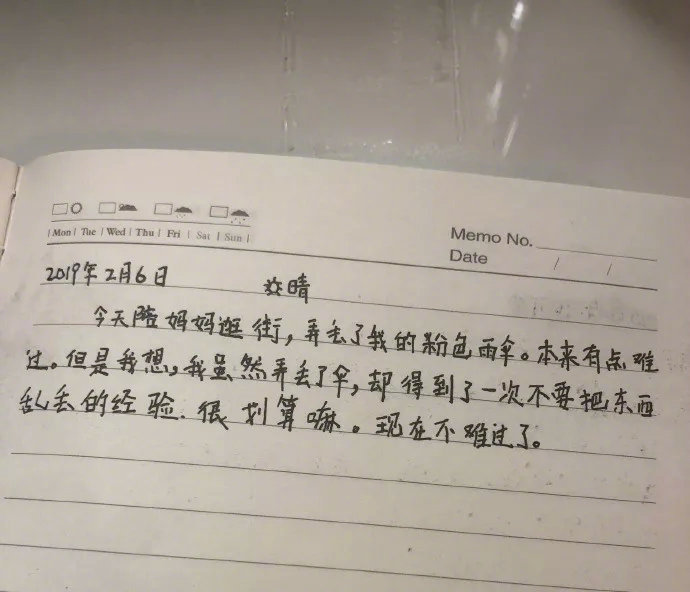 Mon Tue Wed Thu Fri Sat Sun
Memo No.
Date / /
2019年2月6日 晴
今天陪妈妈逛街,弄丢了我的粉色雨伞。本来有点难
过。但是我想,我虽然弄丢了伞,却得到了一次不要把东西
乱丢的经验.很划算嘛。现在不难过了。